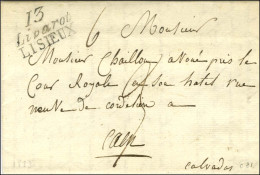 13
Livarot
LISIEUX
6 Monsieur
Monsieur Chaillou avoué près le
Cour Royale en son hotel rue
neuve de cordelier a
Caen
Calvados